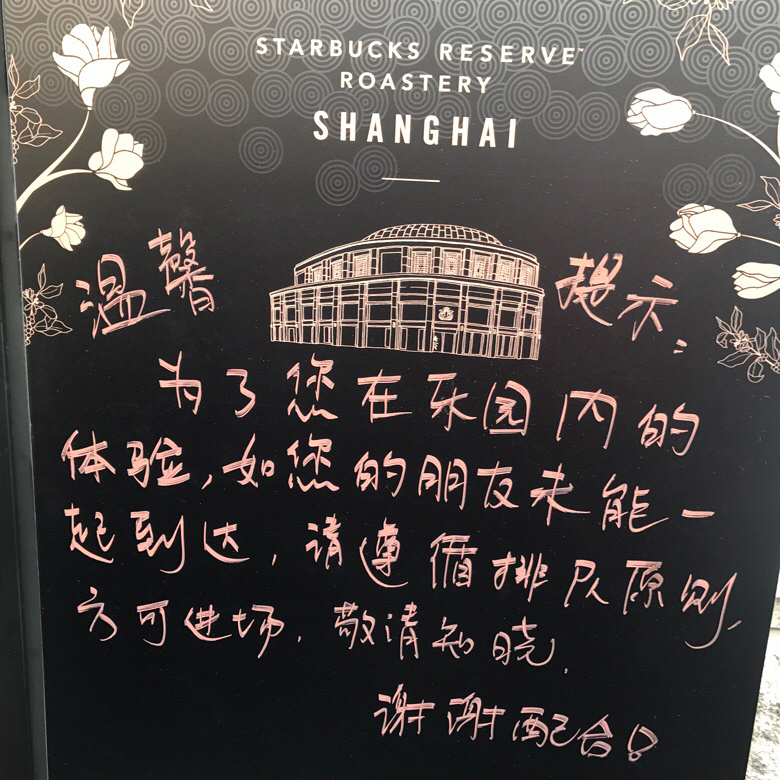 STARBUCKS RESERVE™
ROASTERY
SHANGHAI
温馨 提示：
为了您在乐园内的
体验，如您的朋友未能一
起到达，请遵循排队原则，
方可进场。敬请知晓。
谢谢配合！